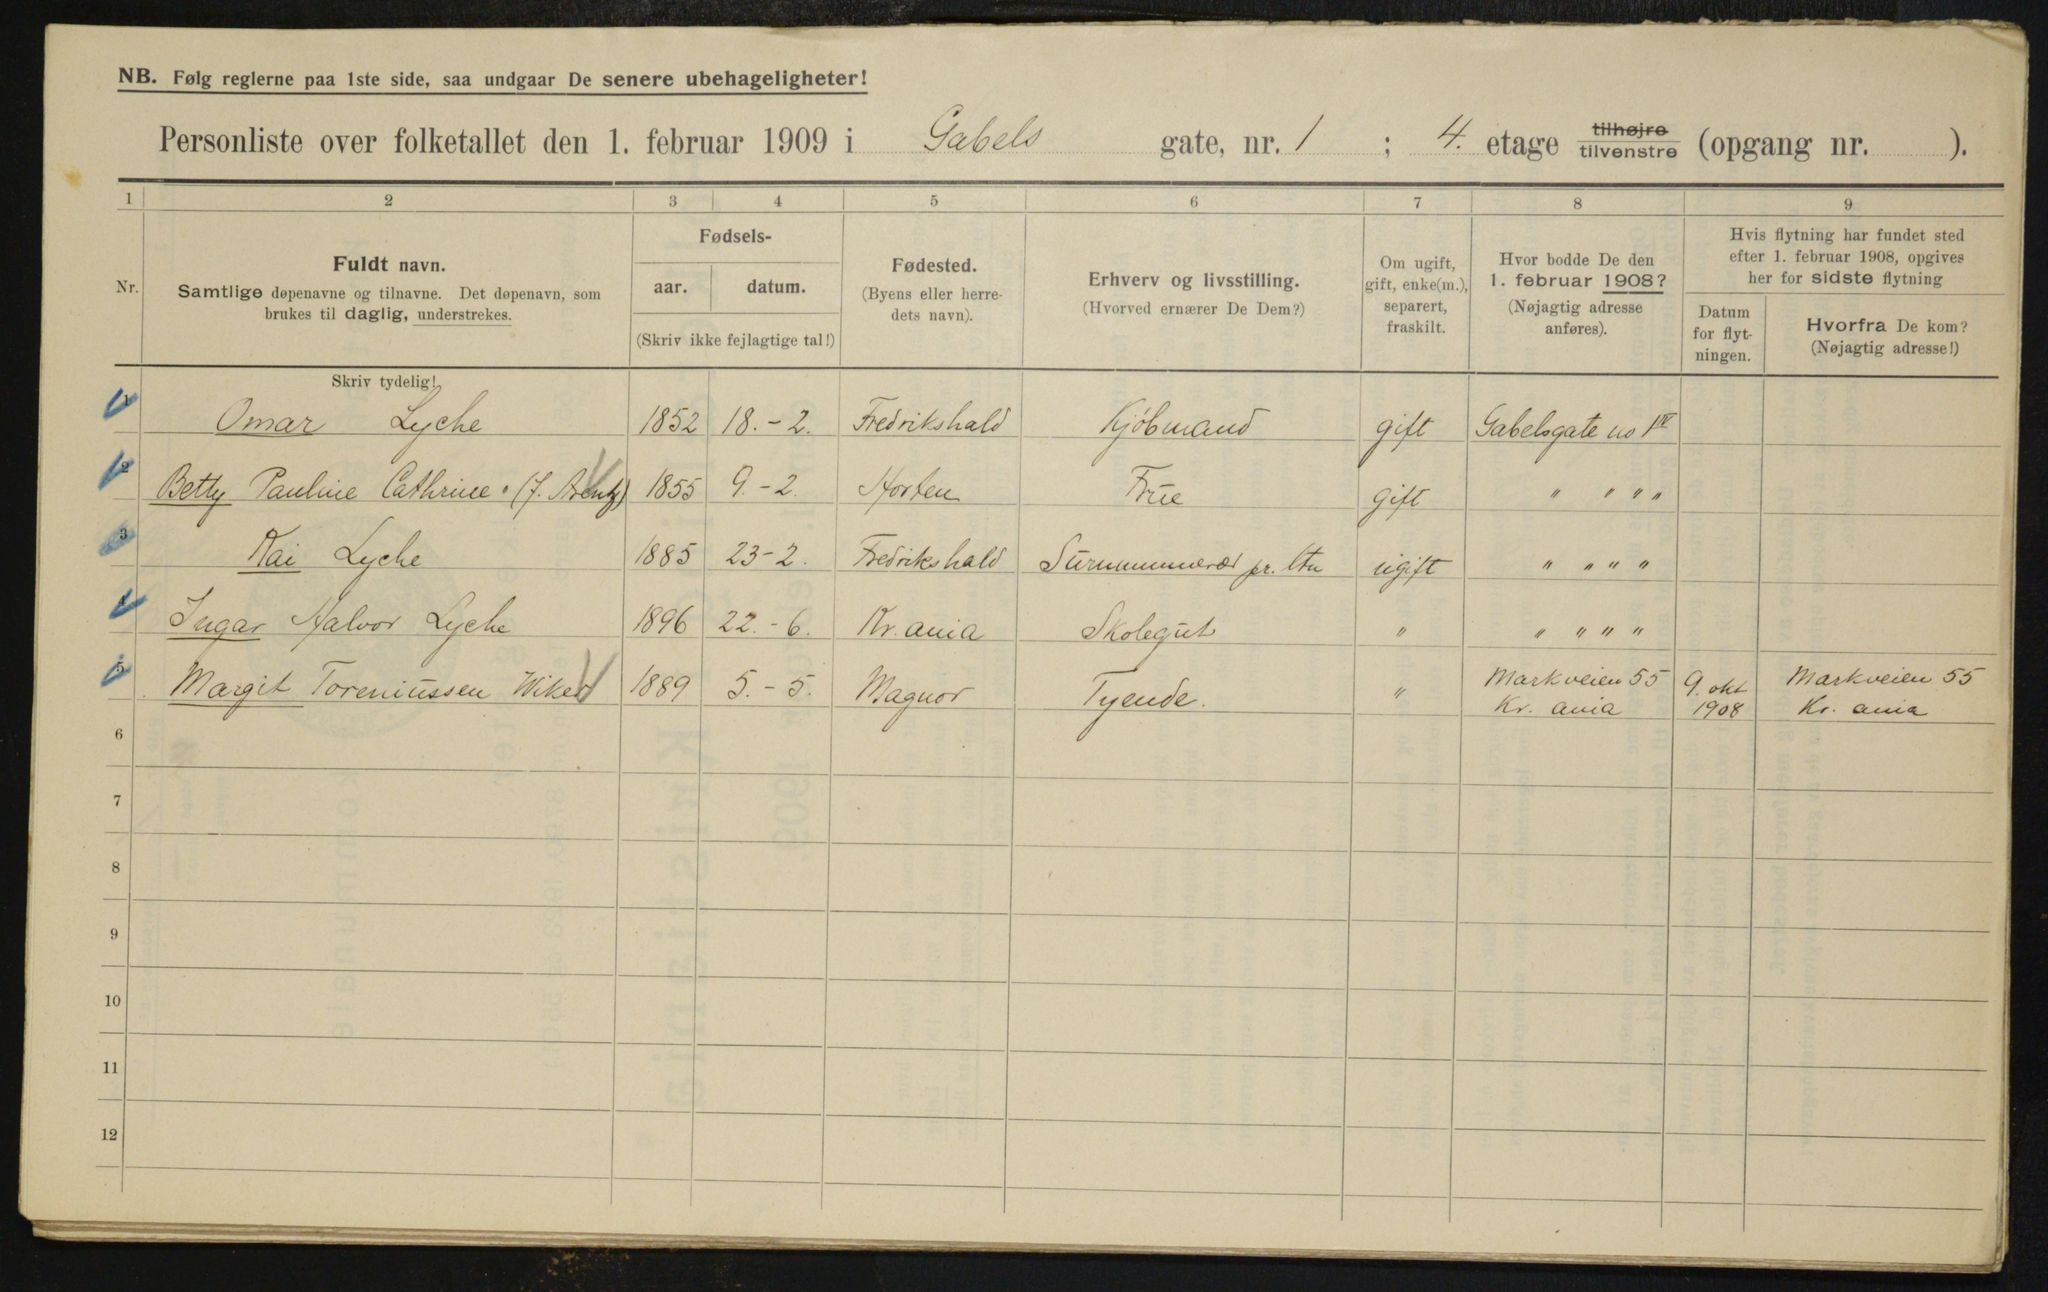 NB. Følg reglerne paa 1ste side, saa undgaar De senere ubehageligheter!
Personliste over folketallet den 1. februar 1909 i Gabels gate, nr. 1 ; 4. etage tilhøjre tilvenstre (opgang nr. ).
1 2 3 4 5 6 7 8 9
Nr.
Fuldt navn.
Samtlige døpenavne og tilnavne. Det døpenavn, som
brukes til daglig, understrekes.
Skriv tydelig!
Fødsels-
aar. datum.
(Skriv ikke fejlagtige tal!)
Fødested.
(Byens eller herre-
dets navn).
Erhverv og livsstilling.
(Hvorved ernærer De Dem?)
Om ugift,
gift, enke(m.),
separert,
fraskilt.
Hvor bodde De den
1. februar 1908?
(Nøjagtig adresse
anføres).
Hvis flytning har fundet sted
efter 1. februar 1908, opgives
her for sidste flytning
Datum
for flyt-
ningen.
Hvorfra De kom?
(Nøjagtig adresse!)
1 Omar Lyche 1852 18.-2. Fredrikshald Kjøbmand gift Gabelsgate no 1 IV
2 Betty Pauline Cathrine (f. ) 1855 9.-2. Horten Frue gift " " " "
3 Kai Lyche 1885 23-2. Fredrikshald pr. ugift " " " "
4 Ingar Halvor Lyche 1896 22.-6. Kr. ania Skolegut " " " " "
5 Margit Toreniussen Wiker 1889 5.-5. Magnor Tyende. " Markveien 55 Kr. ania 9. okt 1908 Markveien 55 Kr. ania
6
7
8
9
10
11
12